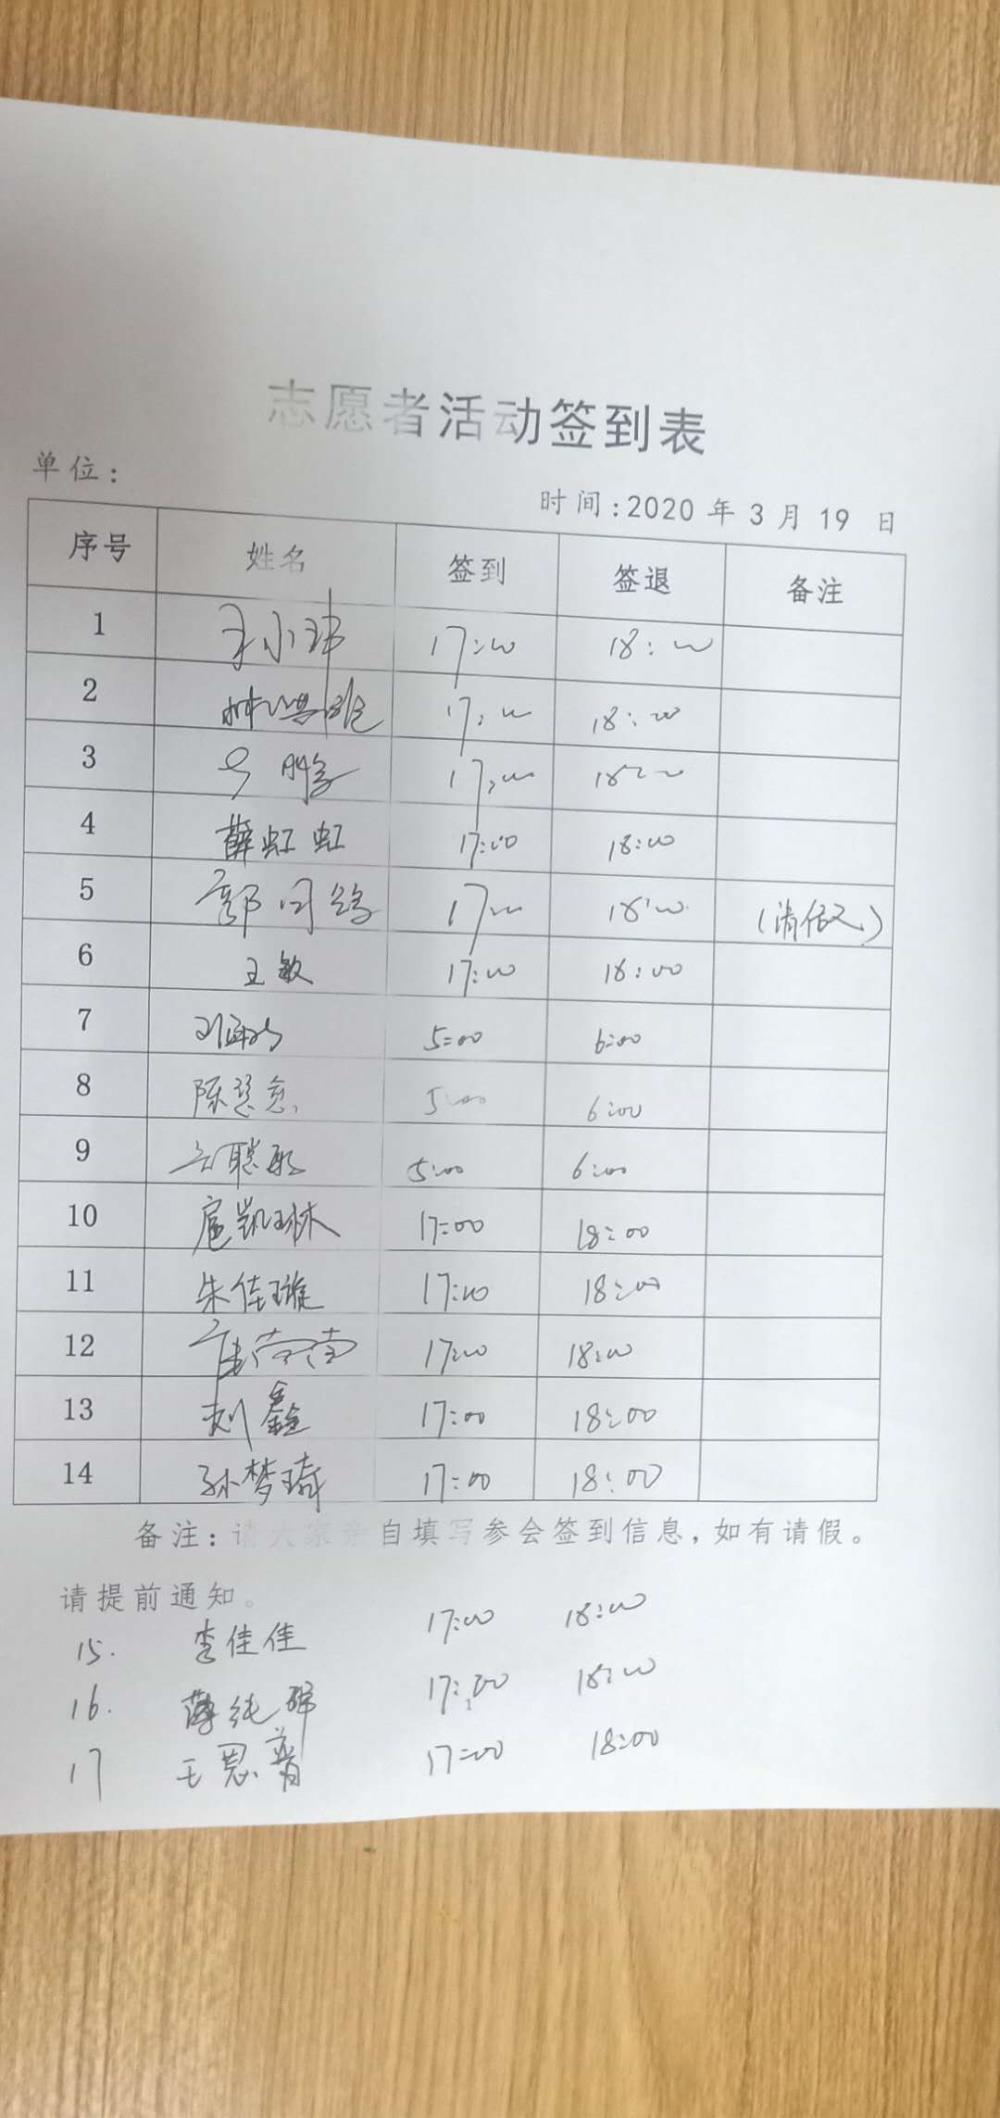 志愿者活动签到表
单位：
时间:2020 年 3 月 19 日
序号 姓名 签到 签退 备注
1 王小玮 17:00 18:00
2 17:00 18:00
3 17:00 18:00
4 薛虹虹 17:00 18:00
5 郭 17:00 18:00 (请假)
6 王敏 17:00 18:00
7 5:00 6:00
8 陈慧 5:00 6:00
9 5:00 6:00
10 扈凯琳 17:00 18:00
11 朱佳璇 17:00 18:00
12 17:00 18:00
13 刘鑫 17:00 18:00
14 孙梦琦 17:00 18:00
备注：请大家亲自填写参会签到信息，如有请假。
请提前通知。
15. 李佳佳 17:00 18:00
16. 薄纯 17:00 18:00
17 王思 17:00 18:00